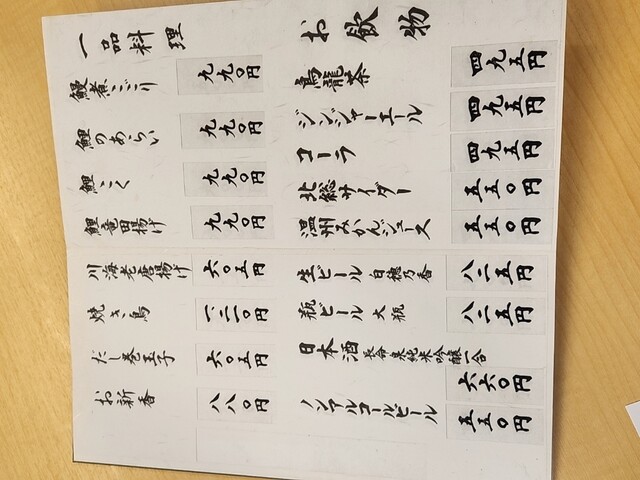 一品料理
鰻煮こごり 九九〇円
鯉のあらい 九九〇円
鯉こく 九九〇円
鯉竜田揚げ 九九〇円
川海老唐揚げ 六〇五円
焼き鳥 一、二一〇円
だし巻玉子 六〇五円
お新香 八八〇円
お飲物
烏龍茶 四九五円
ジンジャーエール 四九五円
コーラ 四九五円
北総サイダー 五五〇円
温州みかんジュース 五五〇円
生ビール 白穂乃香 八二五円
瓶ビール 大瓶 八二五円
日本酒 長命泉純米吟醸一合 六六〇円
ノンアルコールビール 五五〇円